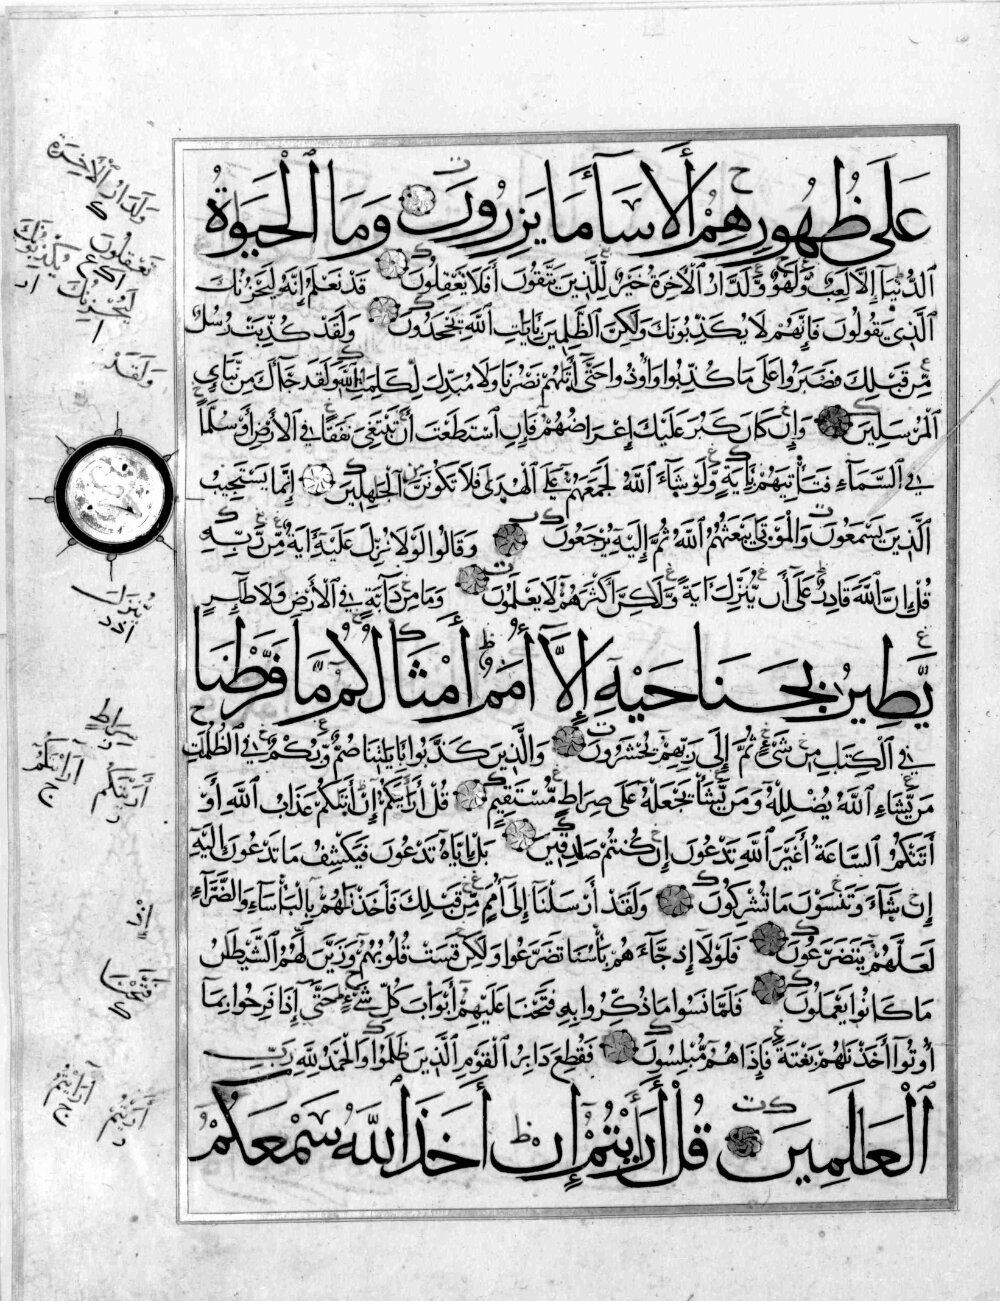 عَلَى ظُهُورِهِمْ أَلَا سَآءَ مَا يَزِرُونَ وَمَا الْحَيَوٰةُ
الدُّنْيَا إِلَّا لَعِبٌ وَلَهْوٌ وَلَلدَّارُ الْأَخِرَةُ خَيْرٌ لِلَّذِينَ يَتَّقُونَ أَفَلَا تَعْقِلُونَ قَدْ نَعْلَمُ إِنَّهُ لَيَحْزُنُكَ
الَّذِي يَقُولُونَ فَإِنَّهُمْ لَا يُكَذِّبُونَكَ وَلَكِنَّ الظَّلِمِينَ بِـَٔايَٰتِ اللَّهِ يَجْحَدُونَ وَلَقَدْ كُذِّبَتْ رُسُلٌ
مِّن قَبْلِكَ فَصَبَرُوا عَلَى مَا كُذِّبُوا وَأُوذُوا حَتَّى أَتَىٰهُمْ نَصْرُنَا وَلَا مُبَدِّلَ لِكَلِمَٰتِ اللَّهِ وَلَقَدْ جَاءَكَ مِن نَّبَإِي
الْمُرْسَلِينَ وَإِن كَانَ كَبُرَ عَلَيْكَ إِعْرَاضُهُمْ فَإِنِ اسْتَطَعْتَ أَن تَبْتَغِيَ نَفَقًا فِي الْأَرْضِ أَوْ سُلَّمًا
فِي السَّمَآءِ فَتَأْتِيَهُمْ بِـَٔايَةٍ وَلَوْ شَآءَ اللَّهُ لَجَمَعَهُمْ عَلَى الْهُدَىٰ فَلَا تَكُونَنَّ مِنَ الْجَٰهِلِينَ إِنَّمَا يَسْتَجِيبُ
الَّذِينَ يَسْمَعُونَ وَالْمَوْتَىٰ يَبْعَثُهُمُ اللَّهُ ثُمَّ إِلَيْهِ يُرْجَعُونَ وَقَالُوا لَوْلَا نُزِّلَ عَلَيْهِ ءَايَةٌ مِّن رَّبِّهِ
قُلْ إِنَّ اللَّهَ قَادِرٌ عَلَىٰ أَن يُنَزِّلَ ءَايَةً وَلَٰكِنَّ أَكْثَرَهُمْ لَا يَعْلَمُونَ وَمَا مِن دَآبَّةٍ فِي الْأَرْضِ وَلَا طَٰئِرٍ
يَطِيرُ بِجَنَاحَيْهِ إِلَّا أُمَمٌ أَمْثَالُكُم مَّا فَرَّطْنَا
فِي الْكِتَٰبِ مِن شَيْءٍ ثُمَّ إِلَىٰ رَبِّهِمْ يُحْشَرُونَ وَالَّذِينَ كَذَّبُوا بِـَٔايَٰتِنَا صُمٌّ وَبُكْمٌ فِي الظُّلُمَٰتِ
مَن يَشَإِ اللَّهُ يُضْلِلْهُ وَمَن يَشَأْ يَجْعَلْهُ عَلَىٰ صِرَاطٍ مُّسْتَقِيمٍ قُلْ أَرَءَيْتَكُمْ إِنْ أَتَىٰكُمْ عَذَابُ اللَّهِ أَوْ
أَتَتْكُمُ السَّاعَةُ أَغَيْرَ اللَّهِ تَدْعُونَ إِن كُنتُمْ صَٰدِقِينَ بَلْ إِيَّاهُ تَدْعُونَ فَيَكْشِفُ مَا تَدْعُونَ إِلَيْهِ
إِن شَآءَ وَتَنسَوْنَ مَا تُشْرِكُونَ وَلَقَدْ أَرْسَلْنَآ إِلَىٰ أُمَمٍ مِّن قَبْلِكَ فَأَخَذْنَٰهُم بِالْبَأْسَآءِ وَالضَّرَّآءِ
لَعَلَّهُمْ يَتَضَرَّعُونَ فَلَوْلَا إِذْ جَآءَهُم بَأْسُنَا تَضَرَّعُوا وَلَٰكِن قَسَتْ قُلُوبُهُمْ وَزَيَّنَ لَهُمُ الشَّيْطَٰنُ
مَا كَانُوا يَعْمَلُونَ فَلَمَّا نَسُوا مَا ذُكِّرُوا بِهِ فَتَحْنَا عَلَيْهِمْ أَبْوَابَ كُلِّ شَيْءٍ حَتَّىٰ إِذَا فَرِحُوا بِمَا
أُوتُوا أَخَذْنَٰهُم بَغْتَةً فَإِذَا هُم مُّبْلِسُونَ فَقُطِعَ دَابِرُ الْقَوْمِ الَّذِينَ ظَلَمُوا وَالْحَمْدُ لِلَّهِ رَبِّ
الْعَالَمِينَ قُلْ أَرَأَيْتُمْ إِنْ أَخَذَ اللَّهُ سَمْعَكُمْ
وَلَدَارُ الْأَخِرَةِ
تَعْقِلُونَ
يُكْذِبُونَكَ
لَيُحْزِنُكَ
وَلَقَدْ
يُنْزِلَ
صِرَاطٍ